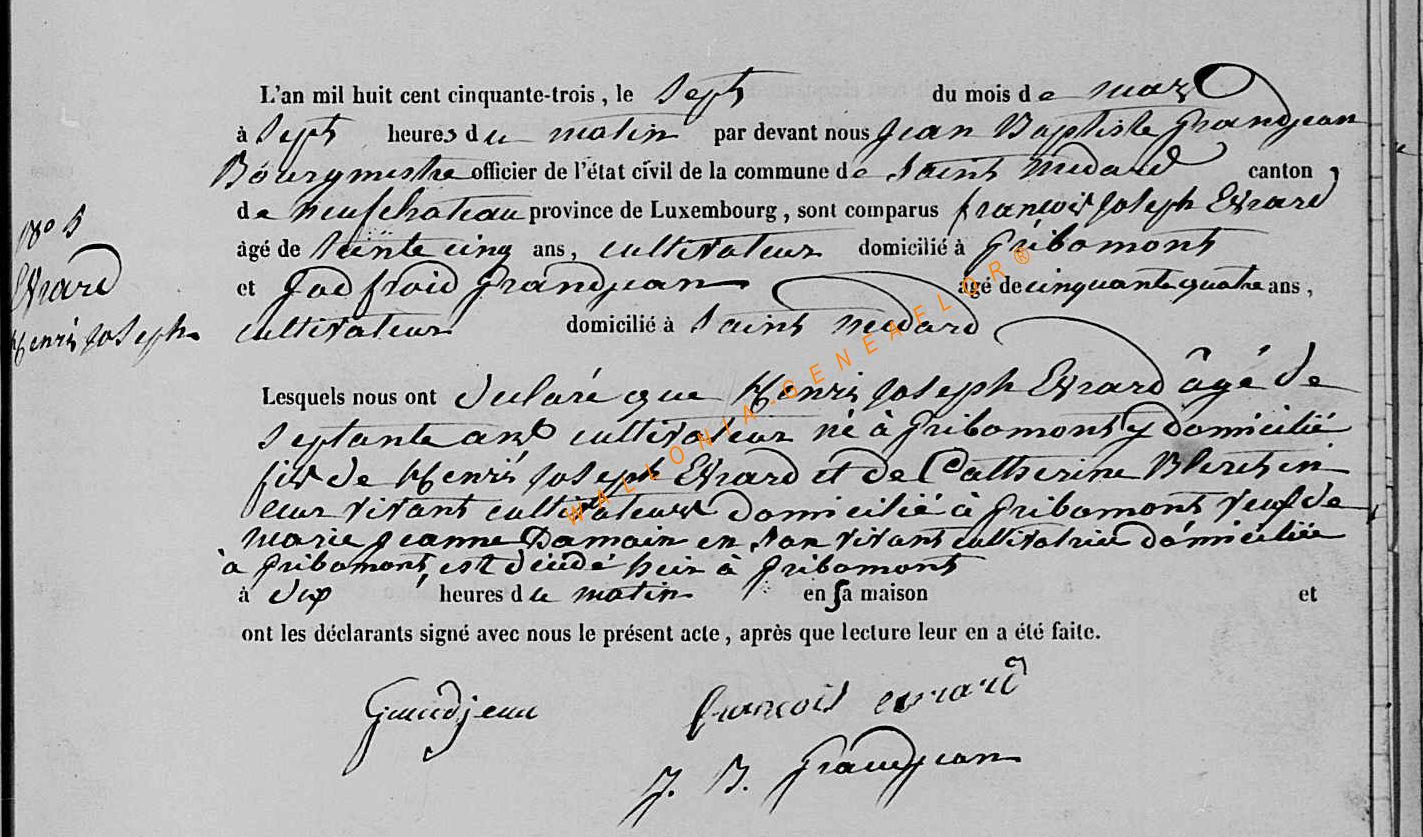 L'an mil huit cent cinquante-trois, le sept du mois de mars
à sept heures du matin par devant nous Jean Baptiste Grandjean
Bourgmestre officier de l'état civil de la commune de Saint Médard canton
de neufchateau province de Luxembourg, sont comparus françois Joseph Evrard
âgé de trente cinq ans, cultivateur domicilié à Gribomont
et Godfroid Grandjean âgé de cinquante quatre ans,
cultivateur domicilié à Saint Médard
N° 5
Evrard
Henri Joseph
Lesquels nous ont déclaré que Henri Joseph Evrard âgé de
septante ans cultivateur né à Gribomont y domicilié
fils de Henri Joseph Evrard et de Catherine
leur vivant cultivateurs domicilié à Gribomont veuf de
marie Jeanne Damain en son vivant cultivatrice domiciliée
à Gribomont, est décédé hier à Gribomont
à dix heures du matin en sa maison et
ont les déclarants signé avec nous le présent acte, après que lecture leur en a été faite.
Grandjean françois evrard
J. B. Grandjean
WALLONIA-GENEAFELOR®